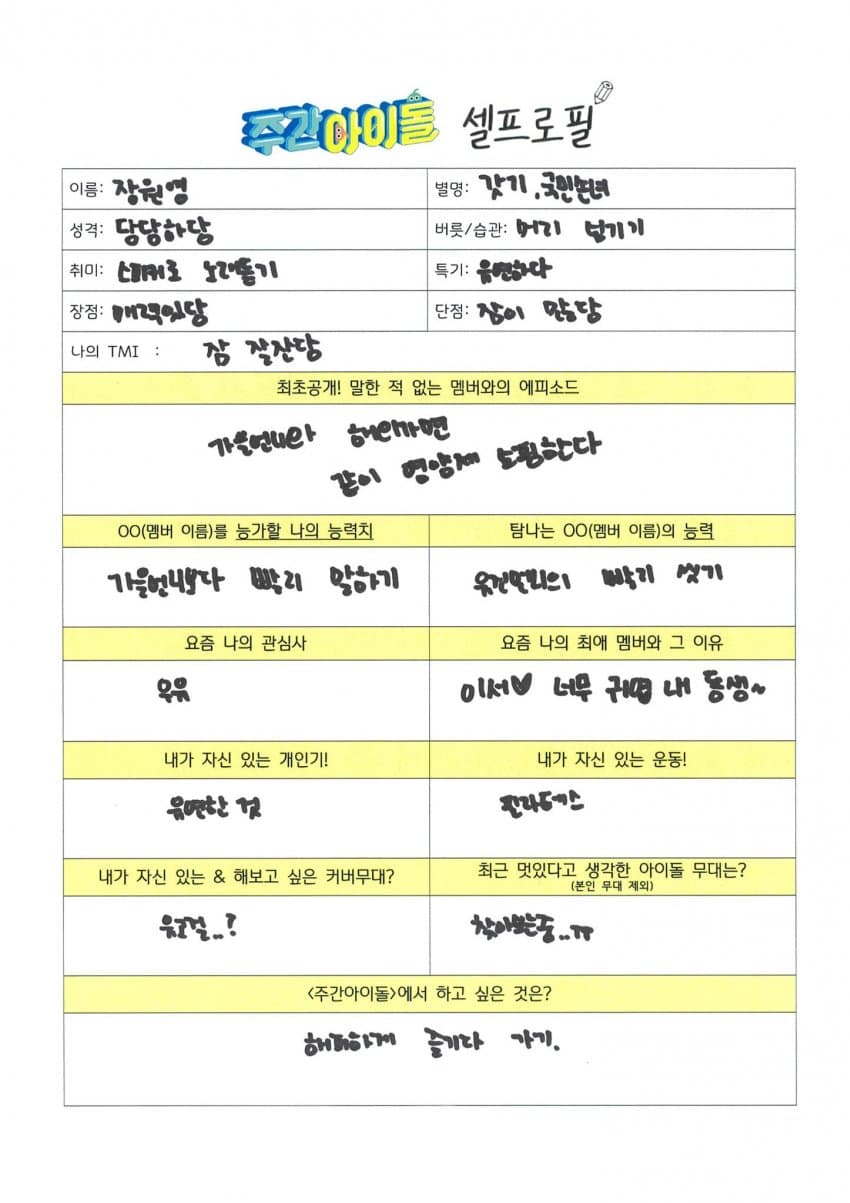 주간아이돌 셀프로필
이름: 장원영 별명: 갓기, 국민손녀
성격: 당당하당 버릇/습관: 머리 넘기기
취미: 스피커로 노래듣기 특기: 유연하다
장점: 매력있당 단점: 잠이 많당
나의 TMI : 잠 잘잔당
최초공개! 말한 적 없는 멤버와의 에피소드
가을언니와 해외가면
같이 영양제 쇼핑한다
OO(멤버 이름)를 능가할 나의 능력치 탐나는 OO(멤버 이름)의 능력
가을언니보다 빨리 말하기 유진언니의 빨리 씻기
요즘 나의 관심사 요즘 나의 최애 멤버와 그 이유
우유 이서♥ 너무 귀엽 내 동생~
내가 자신 있는 개인기! 내가 자신 있는 운동!
유연한 것 필라테스
내가 자신 있는 & 해보고 싶은 커버무대? 최근 멋있다고 생각한 아이돌 무대는?
(본인 무대 제외)
유고걸..? 찾아보는중..ㅠㅠ
<주간아이돌>에서 하고 싶은 것은?
해피하게 즐기다 가기.